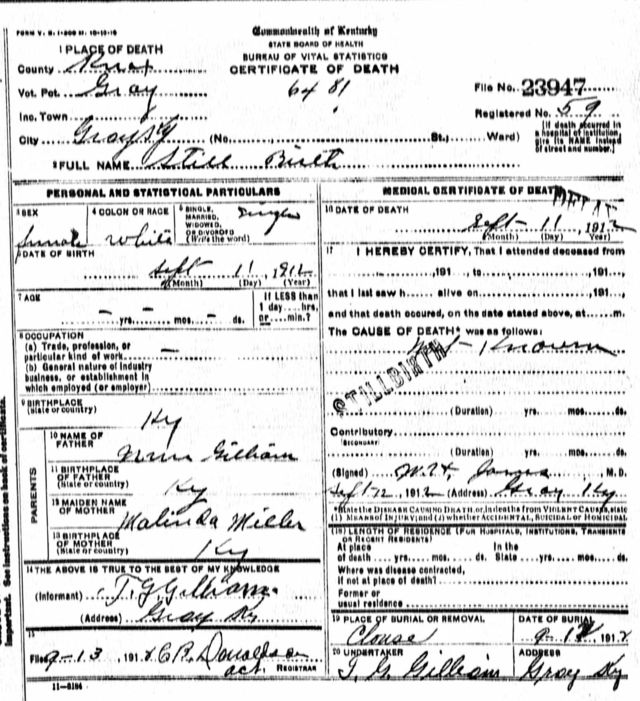 FORM V. S. 1-200 M. 10-10-10
Commonwealth of Kentucky
STATE BOARD OF HEALTH
BUREAU OF VITAL STATISTICS
CERTIFICATE OF DEATH
1 PLACE OF DEATH
County Knox
Vot. Pct. Gray
6481
File No. 23947
Inc. Town
Registered No. 59
City Gray Ky (No. St.; Ward)
[If death occurred in a hospital of institution, give its NAME instead of street and number.]
2 FULL NAME Still Birth
PERSONAL AND STATISTICAL PARTICULARS
3 SEX
female
4 COLOR OR RACE
White
5 SINGLE, MARRIED, WIDOWED, OR DIVORCED (Write the word)
Single
6 DATE OF BIRTH
Sept 11, 1912
(Month) (Day) (Year)
7 AGE
– yrs. – mos. – ds.
If LESS than 1 day ... hrs. or ... min.?
8 OCCUPATION
(a) Trade, profession, or particular kind of work –
(b) General nature of industry business, or establishment in which employed (or employer)
9 BIRTHPLACE
(State or country)
Ky
PARENTS
10 NAME OF FATHER
Gilliam
11 BIRTHPLACE OF FATHER
(State or country)
Ky
12 MAIDEN NAME OF MOTHER
Malinda Miller
13 BIRTHPLACE OF MOTHER
(State or country)
Ky
14 THE ABOVE IS TRUE TO THE BEST OF MY KNOWLEDGE
(Informant) T. G. Gilliam
(Address) Gray Ky
15
Filed 9-13, 1912 C R Donaldson
act. REGISTRAR
11-3184
MEDICAL CERTIFICATE OF DEATH
16 DATE OF DEATH
Sept 11 1912
(Month) (Day) (Year)
17 I HEREBY CERTIFY, That I attended deceased from
, 191 to , 191
that I last saw h alive on , 191
and that death occured, on the date stated above, at m.
The CAUSE OF DEATH* was as follows:
Not Known
STILLBIRTH
(Duration) yrs. mos. ds.
Contributory
(SECONDARY)
(Duration) yrs. mos. ds.
(Signed) M.D.
Sept 12, 1912 (Address) Gray Ky
*State the DISEASE CAUSING DEATH, or, in deaths from VIOLENT CAUSES, state (1) MEANS OF INJURY; and (2) whether ACCIDENTAL, SUICIDAL or HOMICIDAL
(18) LENGTH OF RESIDENCE (FOR HOSPITALS, INSTITUTIONS, TRANSIENTS OR RECENT RESIDENTS)
At place of death yrs. mos. ds. In the State yrs. mos. ds.
Where was disease contracted, if not at place of death?
Former or usual residence
19 PLACE OF BURIAL OR REMOVAL
Clouse
DATE OF BURIAL
9-12 1912
20 UNDERTAKER
T. G. Gilliam
ADDRESS
Gray Ky
Important. See instructions on back of certificate.